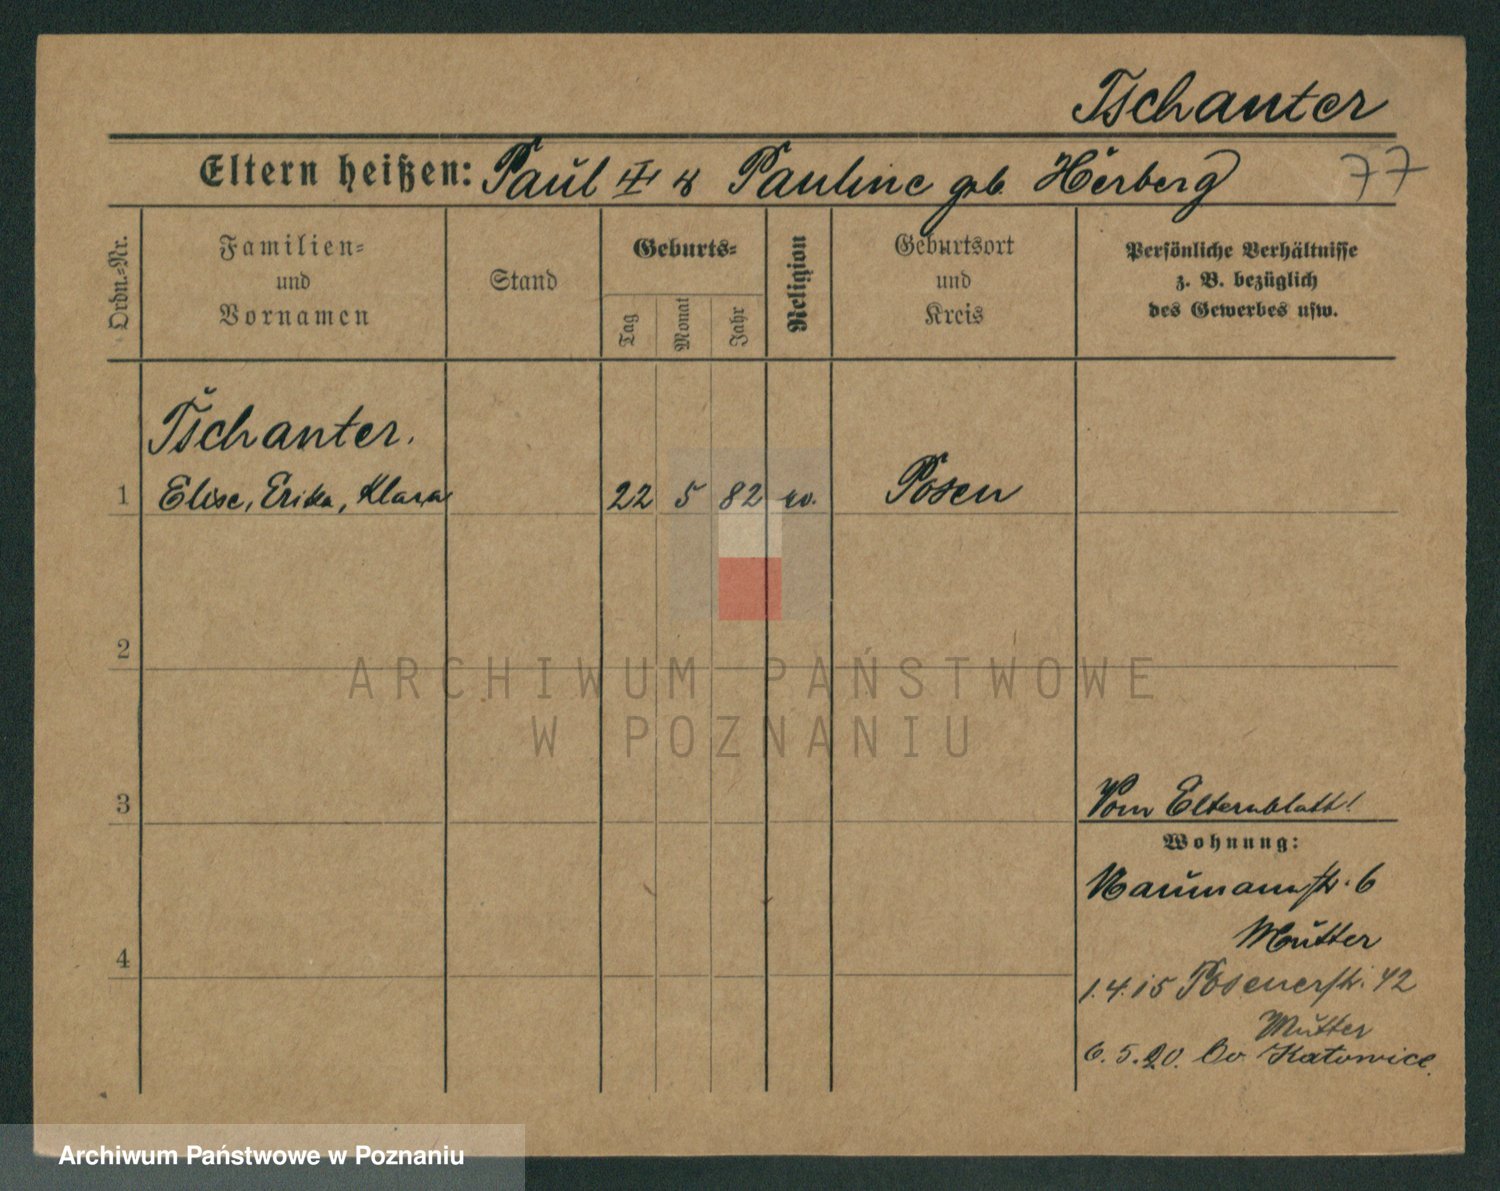 Tschanter
Eltern heißen: Paul & Pauline geb. Herberg 77
Ordn.-Nr.
Familien-
und
Vornamen
Stand
Geburts-
Tag
Monat
Jahr
Religion
Geburtsort
und
Kreis
Persönliche Verhältnisse
z. B. bezüglich
des Gewerbes usw.
Tschanter.
1 Elise, Erika, Klara 22 5 82 ev. Posen
2
ARCHIWUM PAŃSTWOWE
W POZNANIU
3
Vom Elternblatt!
Wohnung:
Naumannstr. 6
Mutter
4
1.4.15 Posenerstr. 42
Mutter
6.5.20. Katowice.
Archiwum Państwowe w Poznaniu